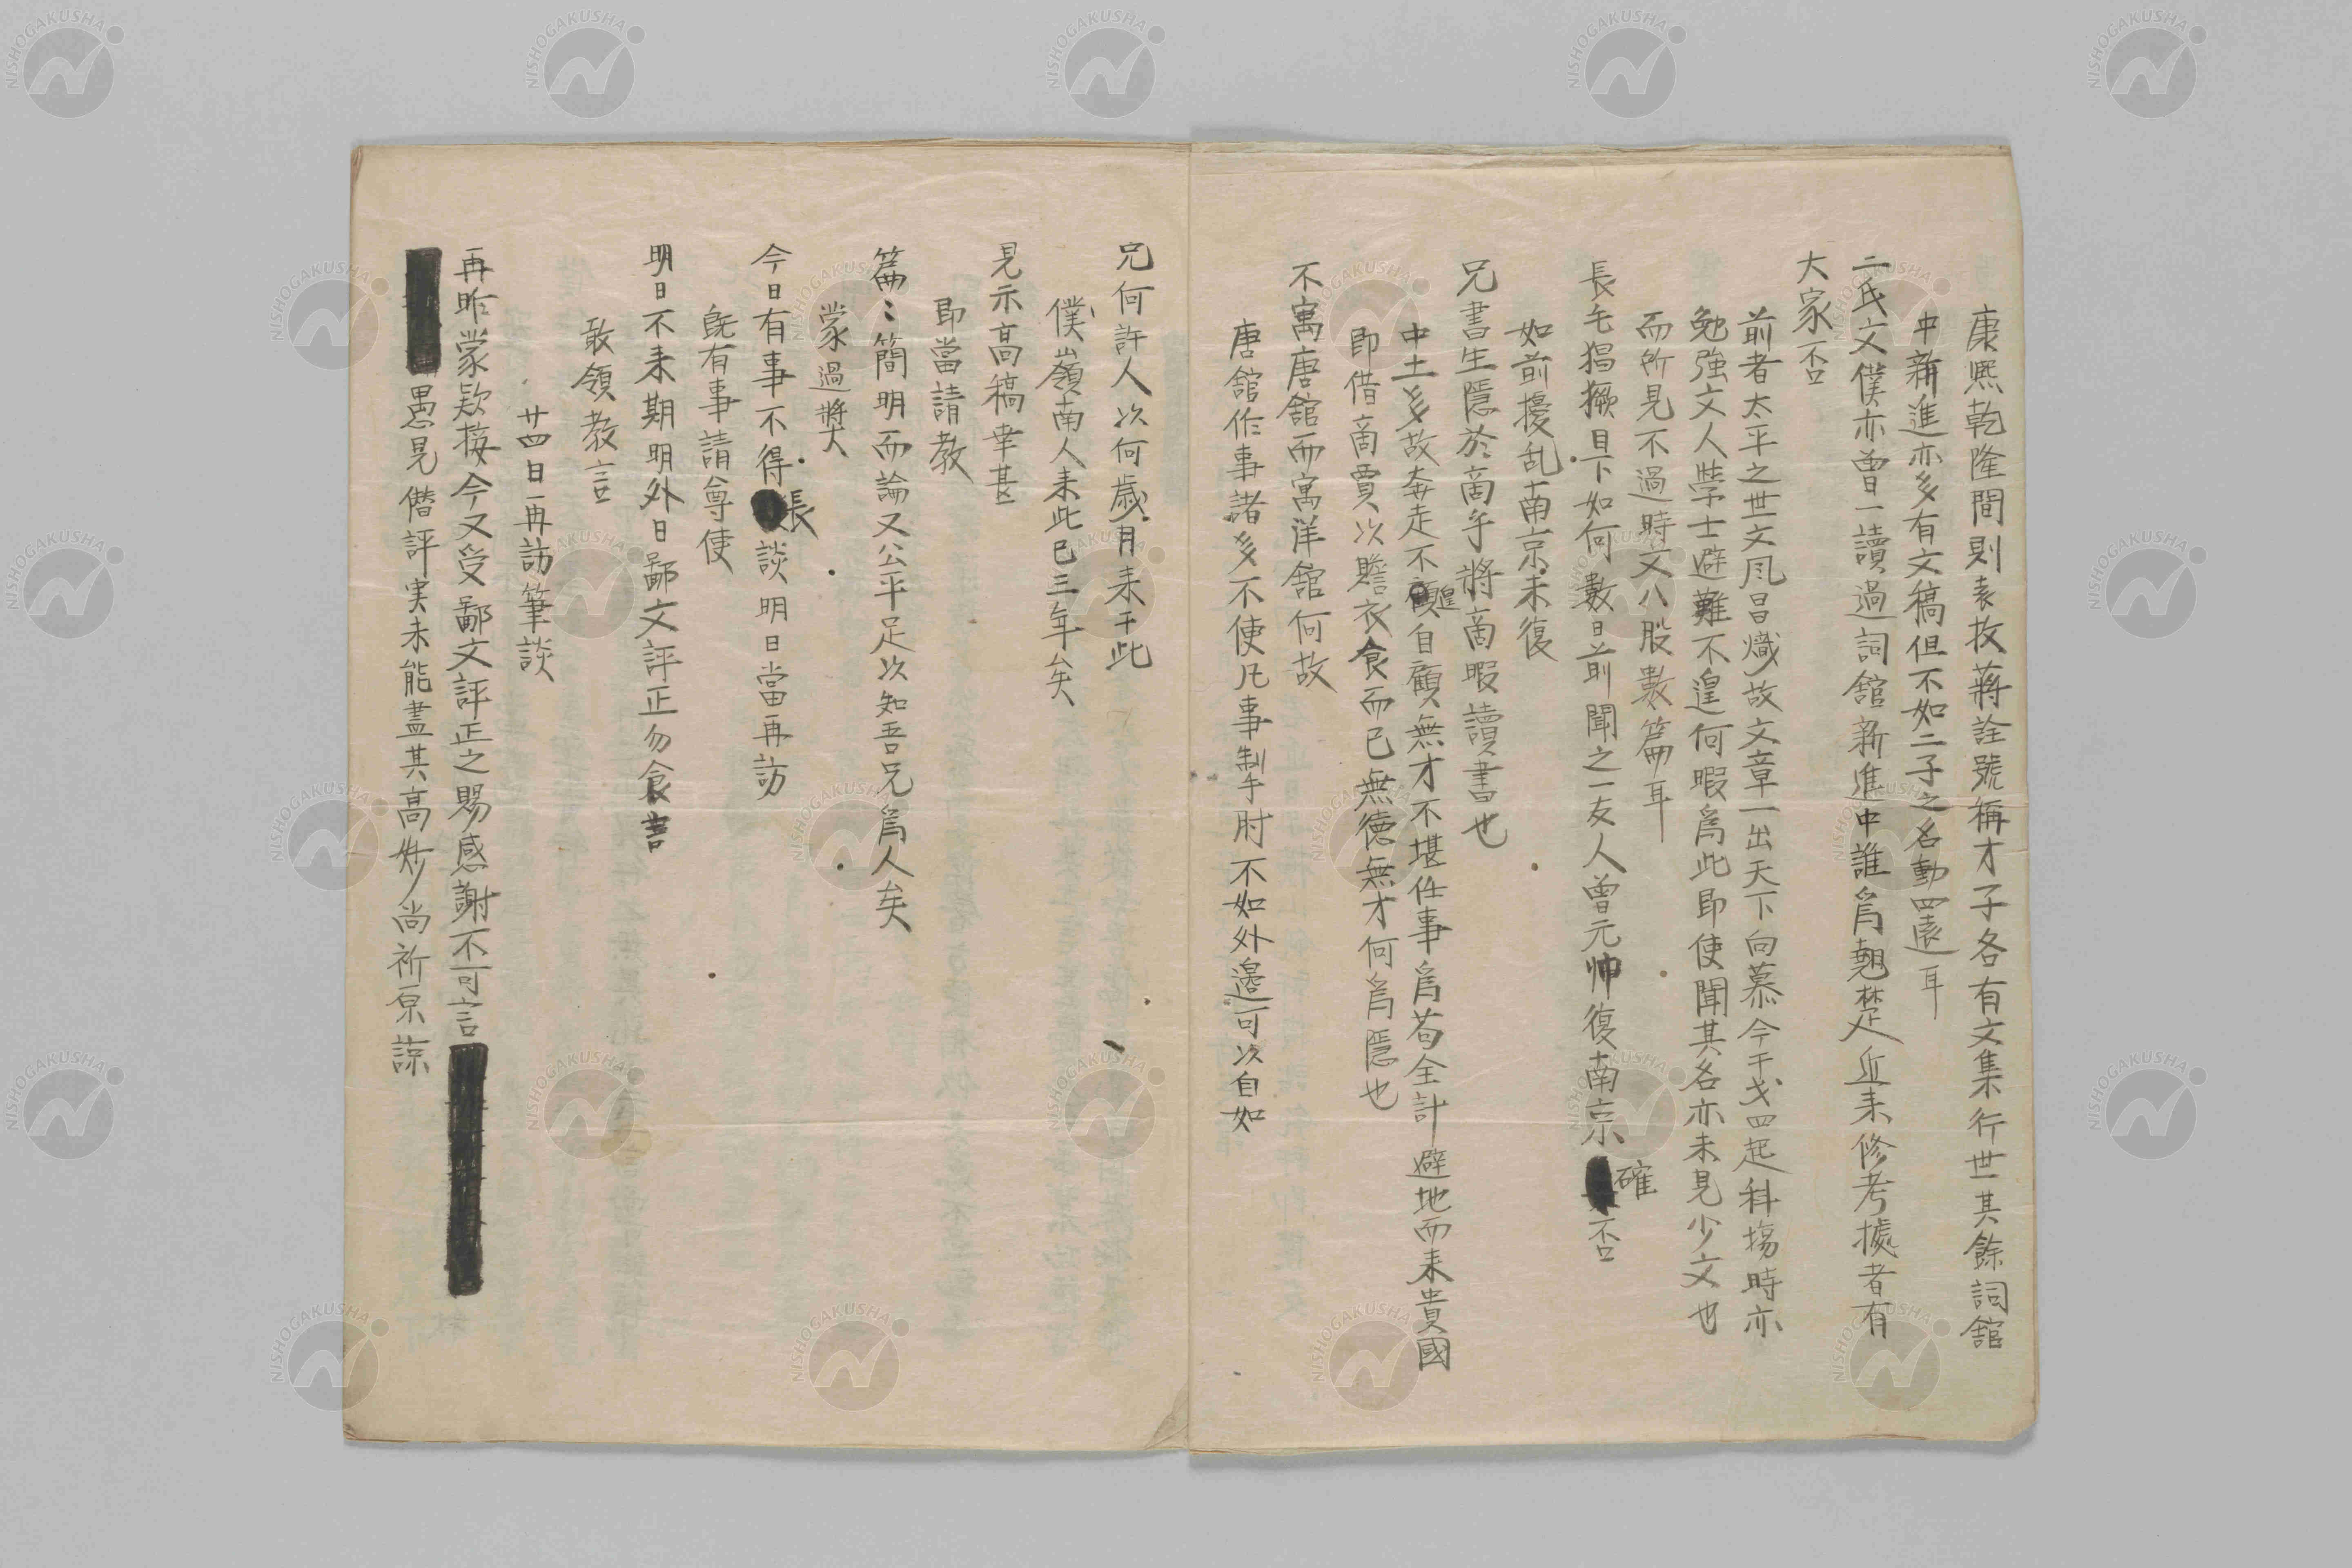 康熙乾隆間則袁枚蔣詮號稱才子各有文集行世其餘詞舘
中新進亦多有文稿但不如二子之名動四遠耳
二氏文僕亦曾一讀過詞舘新進中誰爲翹楚近来修考據者有
大家否
前者太平之世文風昌熾故文章一出天下向慕今干戈四起科塲時亦
勉強文人學士避難不遑何暇爲此即使聞其名亦未見少文也
而所見不過時文八股數篇耳
長毛猖獗目下如何數日前聞之一友人曾元帅復南京確否
如前擾乱南京未復
兄書生隱於商乎將商暇讀書也
中土多故奔走不遑自顧無才不堪任事爲苟全計避地而来貴國
即借商賈以贍衣食而已無德無才何爲隱也
不寓唐舘而寓洋舘何故
唐舘作事諸多不便凡事製肘不如外邊可以自如
兄何許人以何歲月来于此
僕嶺南人来此已三年矣
見示高稿幸甚
即當請教
篇〻簡明而論又公平足以知吾兄爲人矣
蒙過奬
今日有事不得長談明日當再訪
既有事請尊便
明日不来期明外日鄙文評正勿食言
敢領教言
廿四日再訪筆談
再昨蒙欵接今又受鄙文評正之賜感謝不可言
愚見僭評実未能盡其高妙尚祈原諒
NISHOGAKUSHA